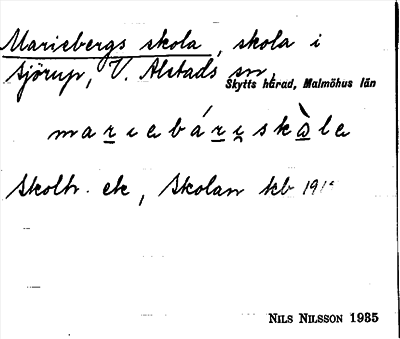 Mariebergs skola, skola i
Sjörup, V. Alstads sn,
Skytts härad, Malmöhus län
mariebáriskàla
Skoltr. ek, Skolan tcb 191
NILS NILSSON 1935